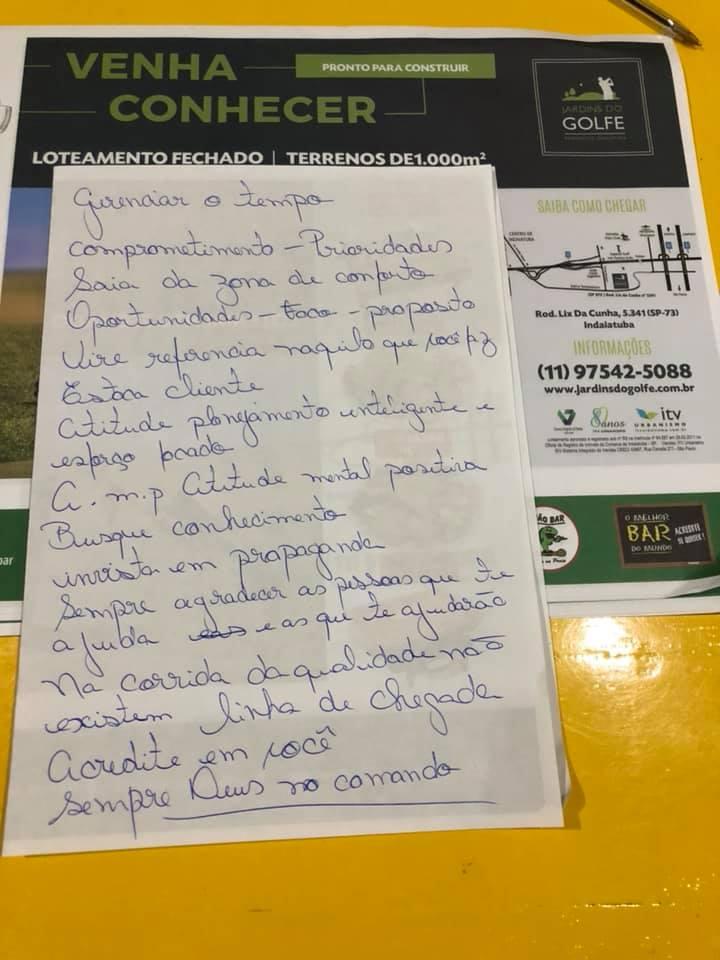 VENHA
CONHECER
PRONTO PARA CONSTRUIR
JARDINS DO
GOLFE
LOTEAMENTO FECHADO | TERRENOS DE 1.000m²
Gerenciar o tempo
comprometimento - Prioridades
Saia da zona de conforto
Oportunidades - foco - proposito
Vire referencia naquilo que você faz
cliente
Atitude planejamento inteligente e
esforço
a.m.p Atitude mental positiva
Busque conhecimento
invista em propaganda
Sempre agradecer as pessoas que te
ajuda e as que te ajudarão
Na corrida da qualidade não
existem linha de chegada
Acredite em você
Sempre Deus no comando
SAIBA COMO CHEGAR
Rod. Lix Da Cunha, 5.341 (SP-73)
Indaiatuba
INFORMAÇÕES
(11) 97542-5088
www.jardinsdogolfe.com.br
8anos
itv
URBANISMO
ÃO BAR
O MELHOR
BAR
DO MUNDO
ACREDITE
SE QUISER!
bar